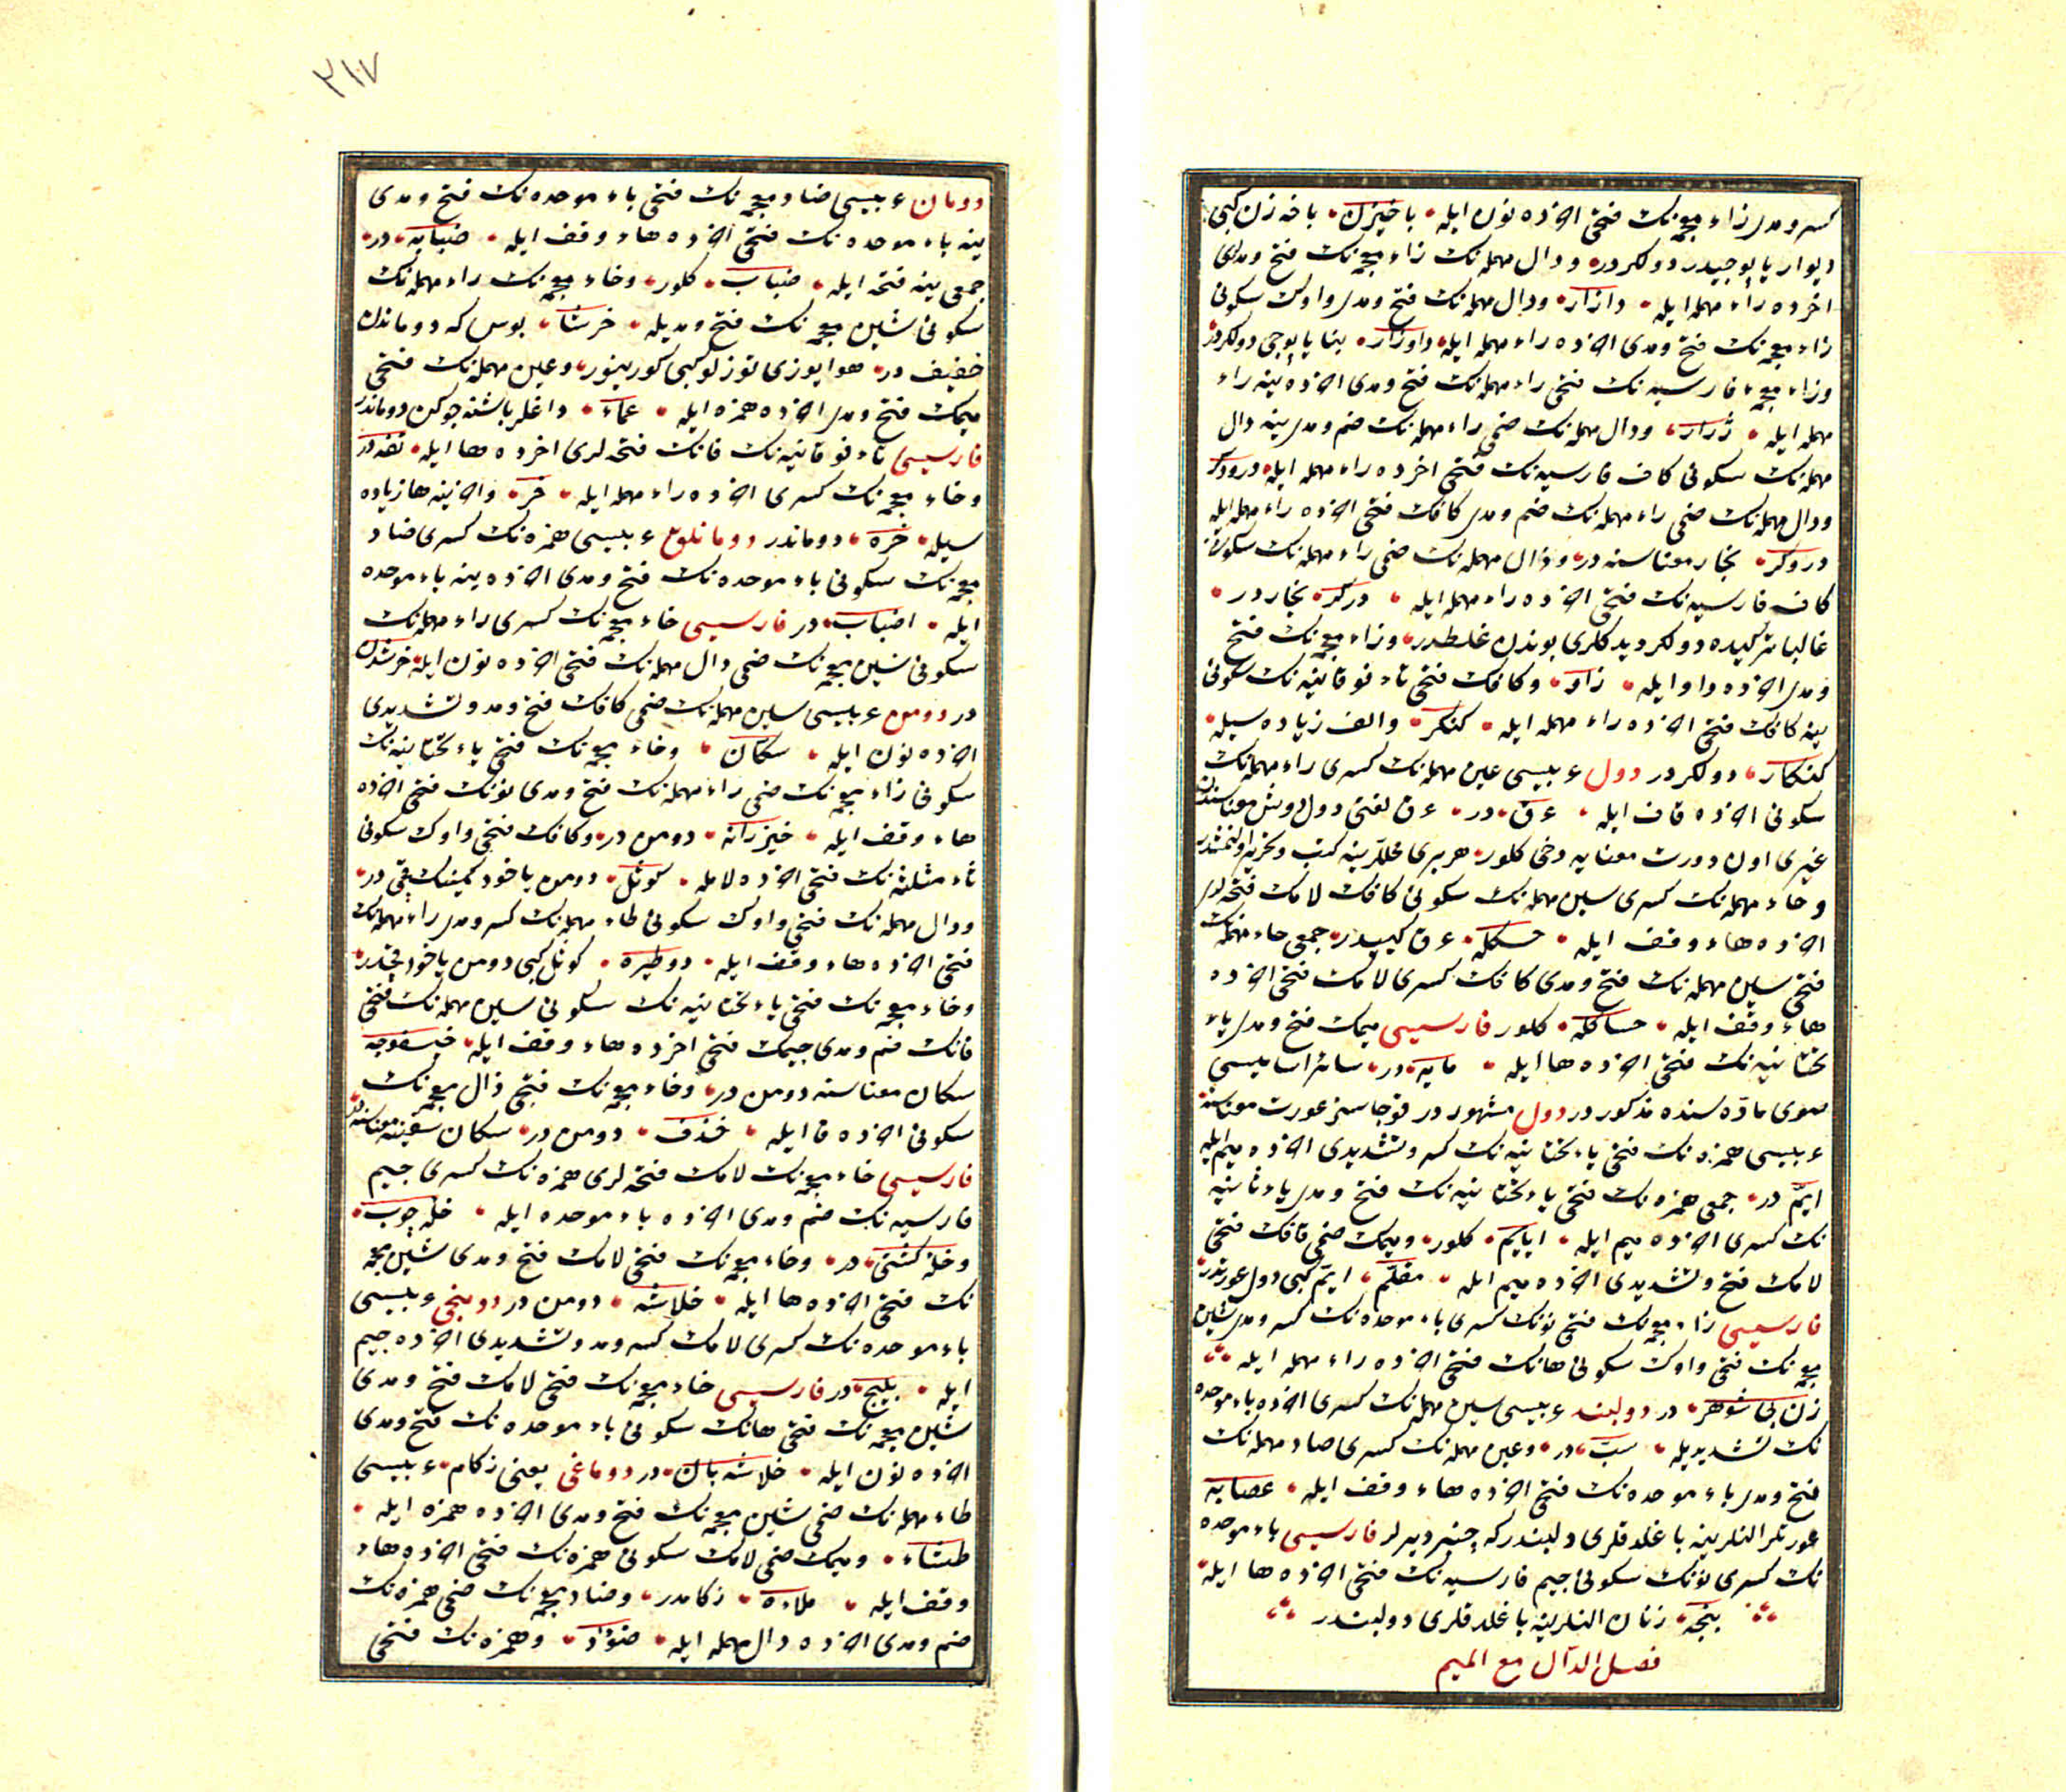 كسر و مدى زاء معجمه نك فتحى اخرده نون ايله باخيزن باخه زن كبى
ديوار يابوجيدر دولكردر ودال مهمله نك زاء معجمه نك فتح ومدلرى
اخرده راء مهمله ايله دازار ودال مهمله نك فتح ومدى واوك سكونى
زاء معجمه نك فتح ومدى اخرده راء مهمله ايله داوزار بنا يابوجى دولكردر
وزاء معجمه فارسيه نك فتحى راء مهمله نك فتح ومدى اخرده ينه راء
مهمله ايله ژرار ودال مهمله نك ضمى راء مهمله نك ضم ومدى ينه دال
مهمله نك سكونى كاف فارسيه نك فتحى اخرده راء مهمله ايله درودكر
ودال مهمله نك ضمى راء مهمله نك ضم ومدى كافك فتحى اخرده راء مهمله ايله
دروكر نجار معناسنه در ودال مهمله نك ضمى راء مهمله نك سكونى
كاف فارسيه نك فتحى اخرده راء مهمله ايله دركر نجاردر
غالبا تركيده دولكر ديدكلرى بوندن غلطدر وزاء معجمه نك فتح
ومدى اخرده واو ايله زاو وكافك فتحى تاء فوقانيه نك سكونى
ينه كافك فتحى اخرده راء مهمله ايله كتكر والف زياده سيله
كتكار دولكردر دول عربيسى عين مهمله نك كسرى راء مهمله نك
سكونى اخرده قاف ايله عرق در عرق لغتى دول دوش معناسندن
غيرى اول دورت معنايه دخى كلور هر برى محللرينه كتب وتحرير اولنمشدر
وحاء مهمله نك كسرى سين مهمله نك سكونى كافك لامك فتحه لرى
اخرده هاء وقف ايله حسكله عرق كبيدر جمعى حاء مهمله نك
فتحى سين مهمله نك فتح ومدى كافك كسرى لامك فتحى اخرده
هاء وقف ايله حساكله كلور فارسيسى ميمك فتح ومدى ياء
تحتانيه نك فتحى اخرده ها ايله مايه در سائر اساميسى
صوى ماده سنده مذكوردر دول مشهوردر قوجاسز عورت معناسنه
عربيسى همزه نك فتحى ياء تحتانيه نك كسر وتشديدى اخرده ميم ايله
ايّم در جمعى همزه نك فتحى ياء تحتانيه نك فتح ومدى ياء ثانيه
نك كسرى اخرده ميم ايله ايايم كلور وميمك ضمى قافك فتحى
لامك فتح وتشديدى اخرده ميم ايله مقلّم ايّم كبى دول عورتدر
فارسيسى زاء معجمه نك فتحى نونك كسرى باء موحده نك كسر ومدى شين
معجمه نك فتحى واوك سكونى هانك فتحى اخرده راء مهمله ايله
زن بى شوهر در دولبند عربيسى سين مهمله نك كسرى اخرده باء موحده
نك تشديديله سبّ در وعين مهمله نك كسرى صاد مهمله نك
فتح ومدى باء موحده نك فتحى اخرده هاء وقف ايله عصابه
عورتلر النلرينه باغلدقلرى دولبنددركه چنبر ديرلر فارسيسى باء موحده
نك كسرى نونك سكونى جيم فارسيه نك فتحى اخرده ها ايله
بنجه زنان النلرينه باغلدقلرى دولبنددر
فصل الدال مع الميم
٣١٧
دومان عربيسى ضاد معجمه نك فتحى باء موحده نك فتح ومدى
ينه باء موحده نك فتحى اخرده هاء وقف ايله ضبابه در
جمعى ينه فتحه ايله ضباب كلور وخاء معجمه نك راء مهمله نك
سكونى شين معجمه نك فتح ومديله خرشا بوس كه دوماندن
خفيف در هوا يوزى توزلو كبى كورينور وعين مهمله نك فتحى
ميمك فتح ومدى اخرده همزه ايله عماء داغلر باشنه چوكن دوماندر
فارسيسى تاء فوقانيه نك فانك فتحه لرى اخرده ها ايله تفه در
وخاء معجمه نك كسرى اخرده راء مهمله ايله خر واخرينه ها زياده
سيله خره دوماندر دومانلو عربيسى همزه نك كسرى ضاد
معجمه نك سكونى باء موحده نك فتح ومدى اخرده ينه باء موحده
ايله اضباب در فارسيسى خاء معجمه نك كسرى راء مهمله نك
سكونى شين معجمه نك ضمى دال مهمله نك فتحى اخرده نون ايله خرشدن
در دومن عربيسى سين مهمله نك ضمى كافك فتح ومد وتشديدى
اخرده نون ايله سكّان وخاء معجمه نك فتحى ياء تحتانيه نك
سكونى زاء معجمه نك ضمى راء مهمله نك فتح ومدى نونك فتحى اخرده
هاء وقف ايله خيزرانه دومن در وكافك فتحى واوك سكونى
ثاء مثلثه نك فتحى اخرده لامله كوثل دومن ياخود كمينك قيچى در
ودال مهمله نك فتحى واوك سكونى طاء مهمله نك كسر ومدى راء مهمله نك
فتحى اخرده هاء وقف ايله دوطيره كوثل كبى دومن ياخود قيچدر
وخاء معجمه نك فتحى ياء تحتانيه نك سكونى سين مهمله نك فتحى
فانك ضم ومدى جيمك فتحى اخرده هاء وقف ايله خيسفوجه
سكان معناسنه دومن در وخاء معجمه نك فتحى ذال معجمه نك
سكونى اخرده فا ايله خذف دومن در سكان سفينه معناسنه در
فارسيسى خاء معجمه نك لامك فتحه لرى همزه نك كسرى جيم
فارسيه نك ضم ومدى اخرده باء موحده ايله خلهٔ چوب
وخلهٔ كشتى در وخاء معجمه نك فتحى لامك فتح ومدى شين معجمه
نك فتحى اخرده ها ايله خلاشه دومن در دومنجى عربيسى
باء موحده نك كسرى لامك كسر ومد وتشديدى اخرده جيم
ايله بليج در فارسيسى خاء معجمه نك فتحى لامك فتح ومدى
شين معجمه نك فتحى هانك سكونى باء موحده نك فتح ومدى
اخرده نون ايله خلاشه بان در دوماغى يعنى زكام عربيسى
طاء مهمله نك ضمى شين معجمه نك فتح ومدى اخرده همزه ايله
طشاء وميمك ضمى لامك سكونى همزه نك فتحى اخرده هاء
وقف ايله ملاءة زكامدر وضاد معجمه نك ضمى همزه نك
ضم ومدى اخرده دال مهمله ايله ضؤود وهمزه نك فتحى